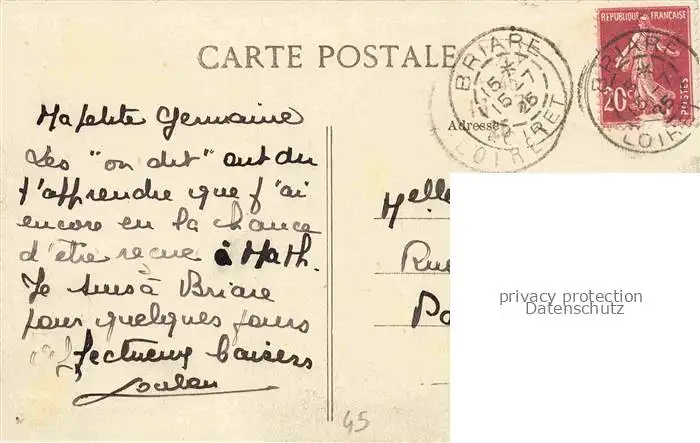 CARTE POSTALE
REPUBLIQUE FRANÇAISE
20c
POSTES
BRIARE
LOIRET
BRIARE
LOIRET
Adresse
Ma petite Germaine
Les "on dit" ont du
t'apprendre que j'ai
encore eu la chance
d'être reçue à Math.
Je suis à Briare
pour quelques jours
affectueux baisers
Melle
Rue
privacy protection
Datenschutz
45